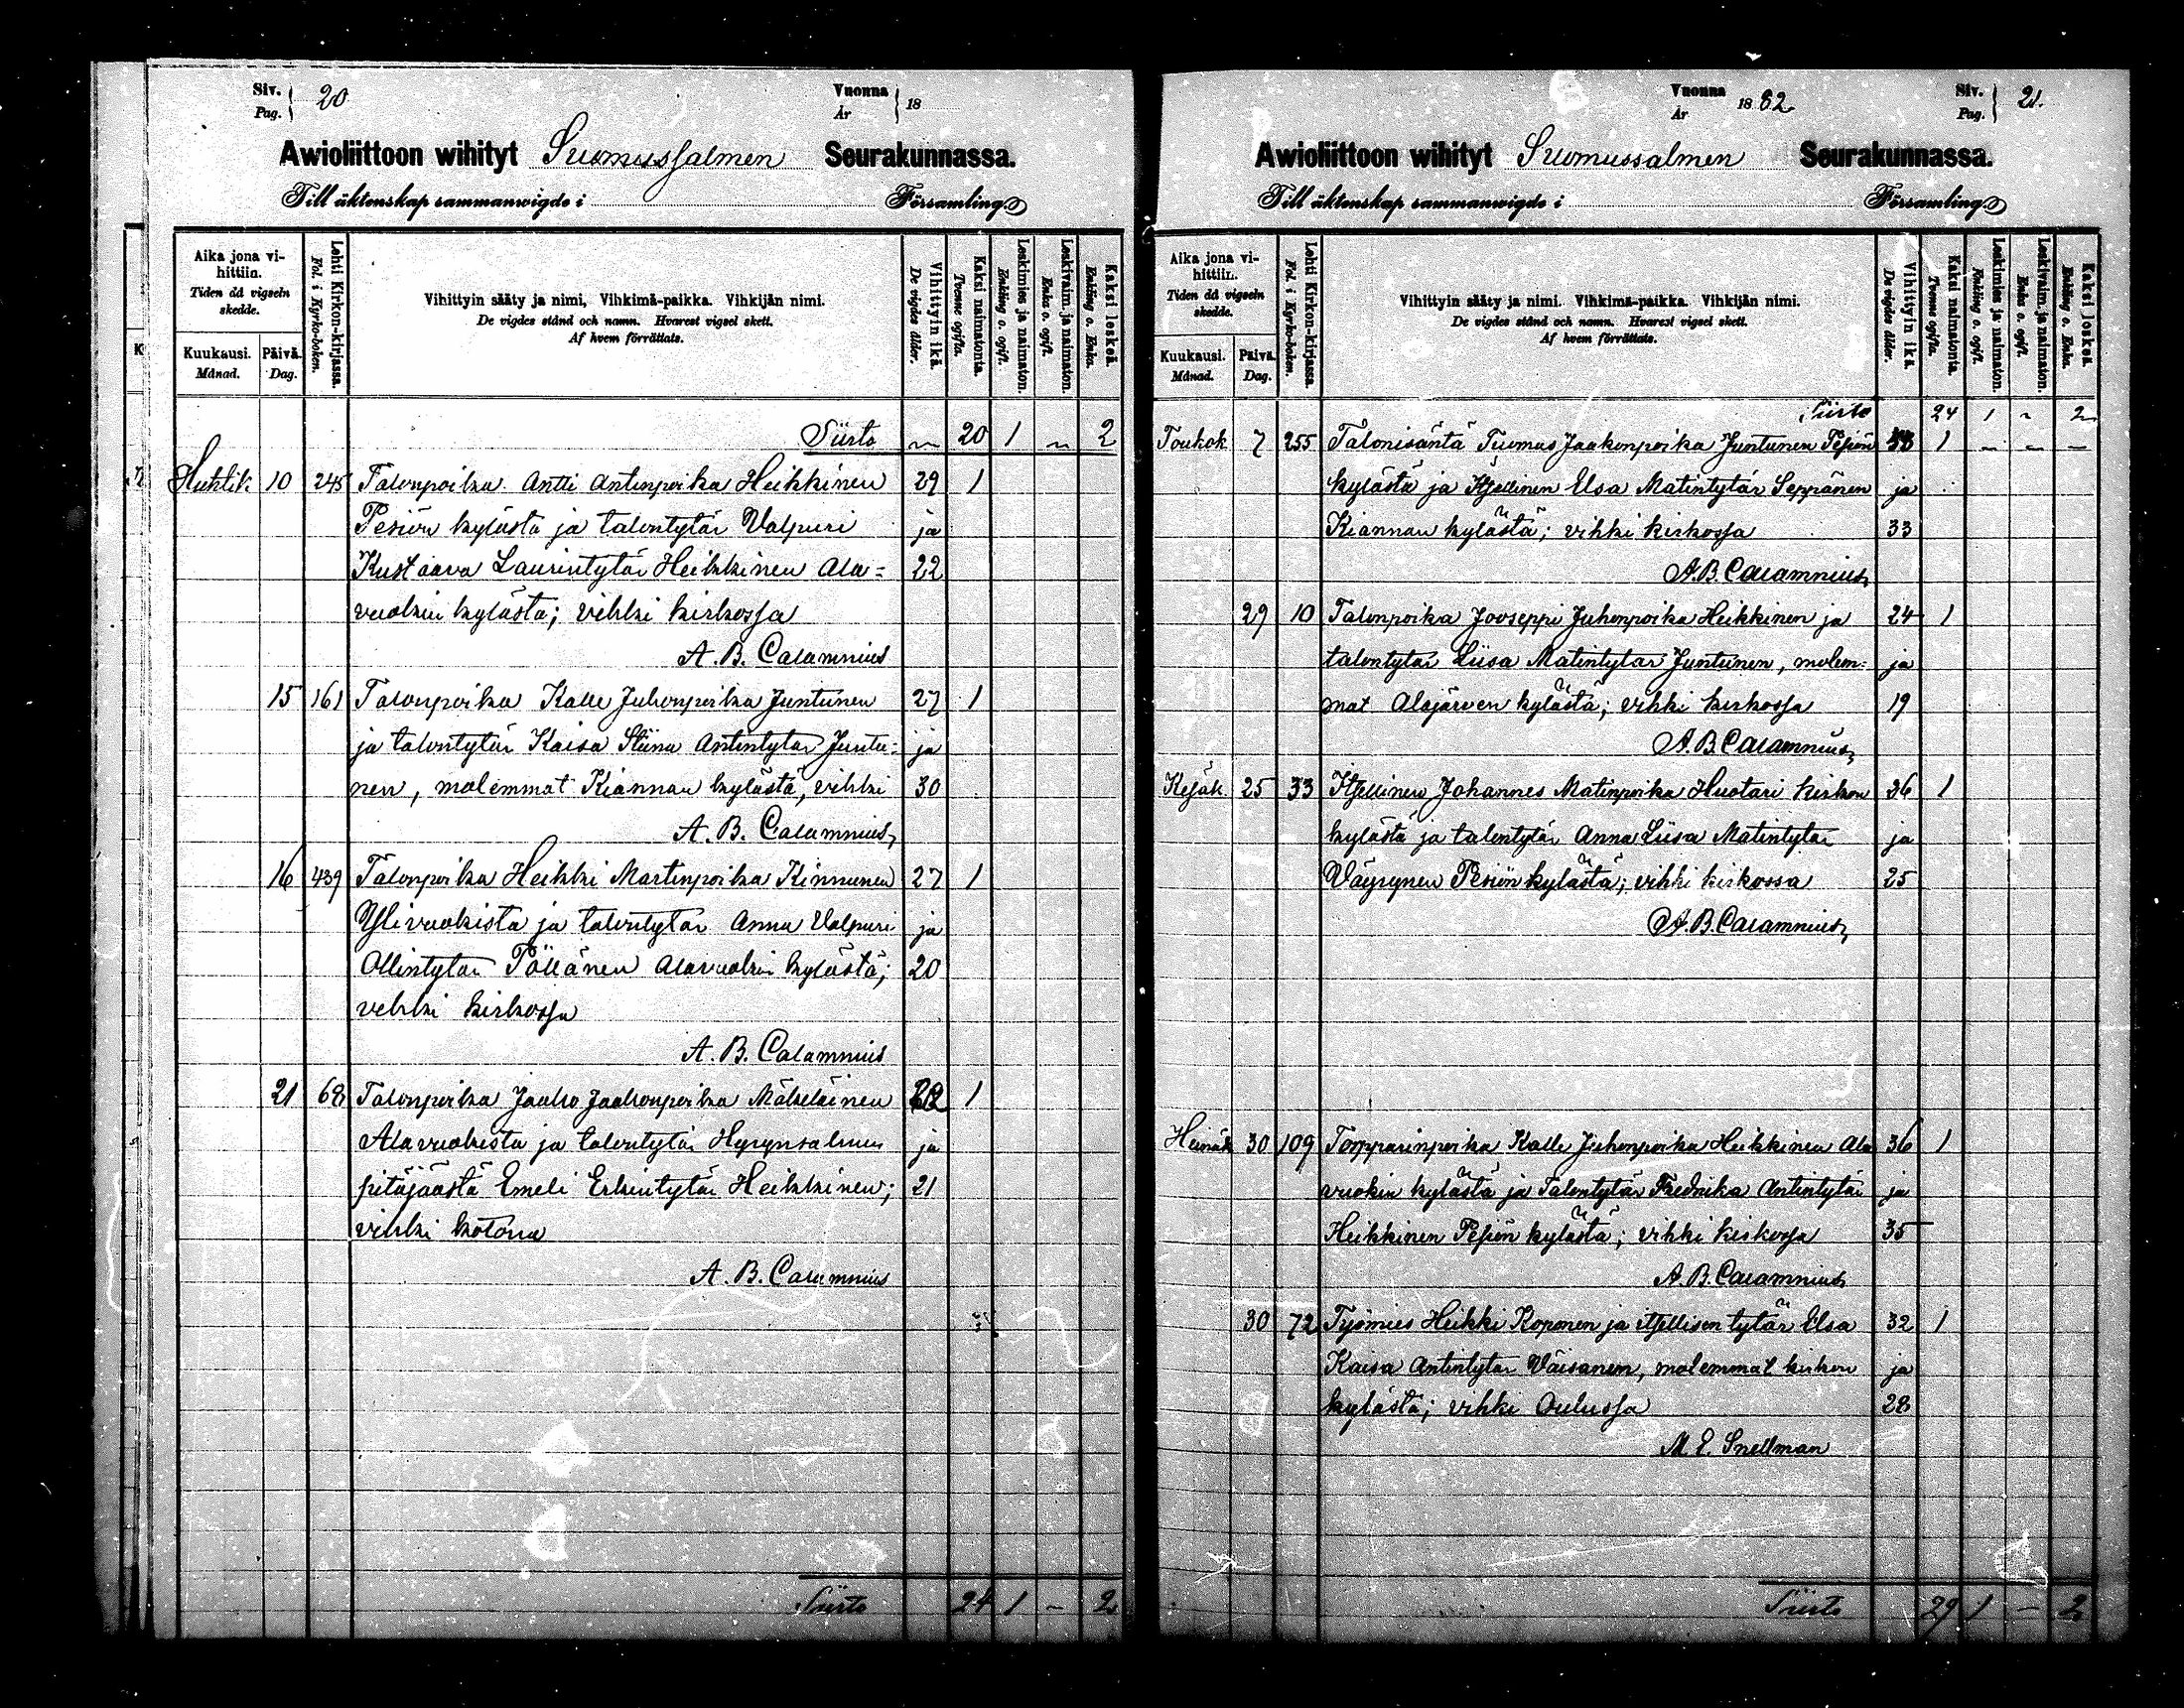 Siv. 20
Pag.
Vuonna 18
År
Awioliittoon wihityt Suomussalmen Seurakunnassa.
Till äktenskap sammanwigde i Församling
Aika jona vihittiin.
Tiden då vigseln skedde.
Kuukausi. Månad.
Päivä. Dag.
Lehti Kirkon-kirjassa.
Fol. i Kyrko-boken.
Vihittyin sääty ja nimi, Vihkimä-paikka. Vihkijän nimi.
De vigdes stånd och namn. Hvarest vigsel skett.
Af hvem förrättats.
Vihittyin ikä.
De vigdes ålder.
Kaksi naimatonta.
Tvenne ogifta.
Leskimies ja naimaton.
Enkling o. ogift.
Leskivaim. ja naimaton.
Enka o. ogift.
Kaksi leskeä.
Enkling o. Enka.
Siirto ~ 20 1 ~ 2
Huhtik 10 245 Talonpoika Antti Antinpoika Heikkinen 29 1
Pesiön kylästä ja talontytär Valpuri ja
Kustaava Laurintytär Heikkinen Ala= 22
vuokin kylästä; vihki kirkossa
A. B. Calamnius
15 161 Talonpoika Kalle Juhonpoika Juntunen 27 1
ja talontytär Kaisa Stiina Antintytär Juntu= ja
nen, molemmat Kiannan kylästä, vihki 30
A. B. Calamnius
16 439 Talonpoika Heikki Martinpoika Kinnunen 27 1
Ylivuokista ja talontytär Anna Valpuri ja
Ollintytär Pöllänen Alavuokin kylästä; 20
vihki kirkossa
A. B. Calamnius
21 68 Talonpoika Jaako Jaakonpoika Mäkeläinen 1
Alavuokista ja talontytär Hyrynsalmen ja
pitäjäästä Emeli Erkintytär Heikkinen; 21
vihki kotona
A. B. Calamnius
Siirto 24 1 - 2
Vuonna 1882
År
Siv. 21.
Pag.
Awioliittoon wihityt Suomussalmen Seurakunnassa.
Till äktenskap sammanwigde i Församling
Aika jona vihittiin.
Tiden då vigseln skedde.
Kuukausi. Månad.
Päivä. Dag.
Lehti Kirkon-kirjassa.
Fol. i Kyrko-boken.
Vihittyin sääty ja nimi. Vihkimä-paikka. Vihkijän nimi.
De vigdes stånd och namn. Hvarest vigsel skett.
Af hvem förrättats.
Vihittyin ikä.
De vigdes ålder.
Kaksi naimatonta.
Tvenne ogifta.
Leskimies ja naimaton.
Enkling o. ogift.
Leskivaim. ja naimaton.
Enka o. ogift.
Kaksi leskeä.
Enkling o. Enka.
Siirto 24 1 ~ 2
Toukok 7 255 Talonisäntä Tuomas Jaakonpoika Juntunen Pesiön 1 ~ ~ ~
kylästä ja Itsellinen Elsa Matintytär Seppänen ja
Kiannan kylästä; vihki kirkossa 33
A. B. Calamnius
29 10 Talonpoika Jooseppi Juhonpoika Heikkinen ja 24 1
talontytär Liisa Matintytär Juntunen, molem= ja
mat Alajärven kylästä; vihki kirkossa 19
A. B. Calamnius
Kesäk 25 33 Itsellinen Johannes Matinpoika Huotari kirkon 36 1
kylästä ja talontytär Anna Liisa Matintytär ja
Väyrynen Pesiön kylästä; vihki kirkossa 25
A. B. Calamnius
Heinäk 30 109 Torpparinpoika Kalle Juhonpoika Heikkinen Ala 36 1
vuokin kylästä ja Talontytär Fredrika Antintytär ja
Heikkinen Pesiön kylästä; vihki kirkossa 35
A. B. Calamnius
30 72 Työmies Heikki Koponen ja itsellisen tytär Elsa 32 1
Kaisa Antintytär Väisänen, molemmat kirkon ja
kylästä; vihki Oulussa 28
M. E. Snellman
Siirto 29 1 - 2